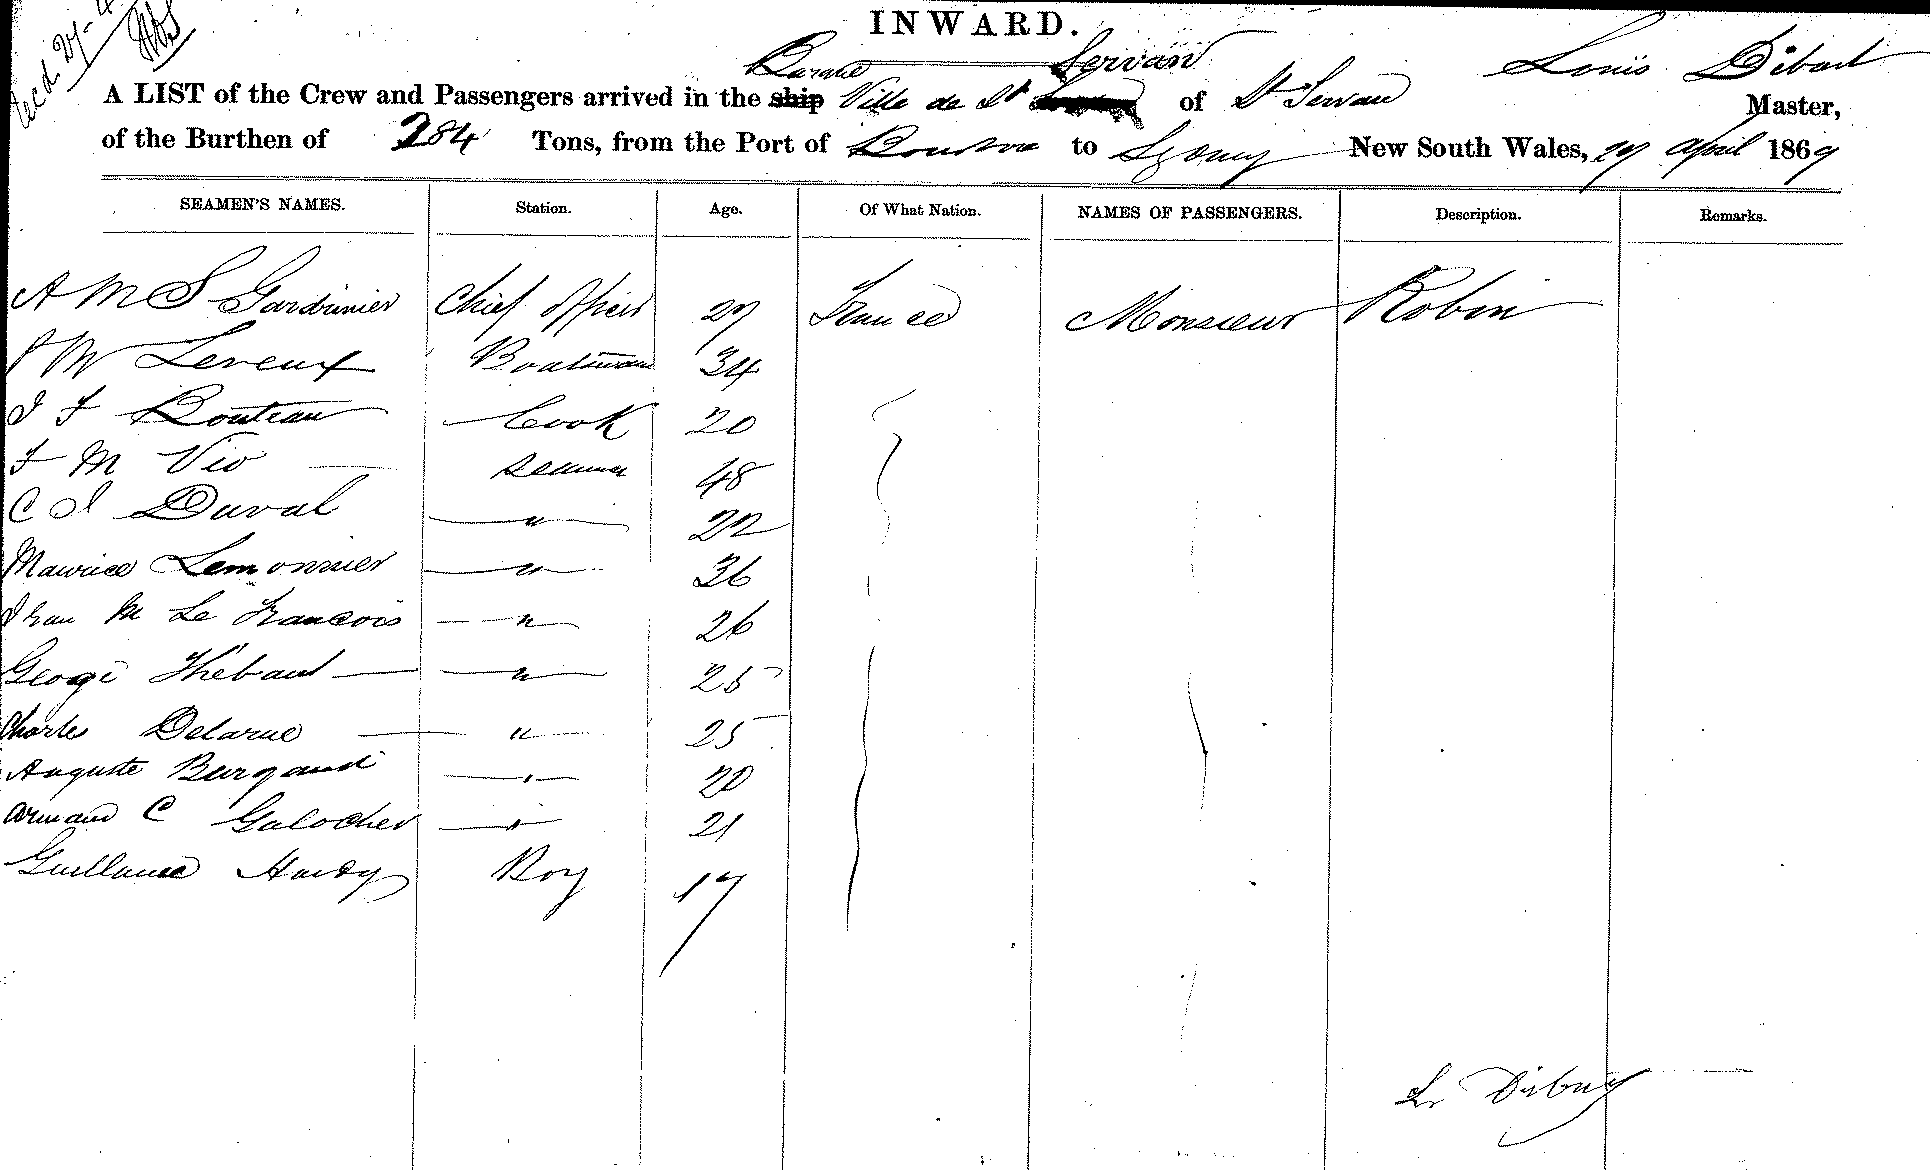 Recd 27-4
INWARD.
Barque Servan Louis Débart
A LIST of the Crew and Passengers arrived in the ship Ville de St of St Servan Master,
of the Burthen of 284 Tons, from the Port of Bourbon to Sydney New South Wales, 27 April 1869
SEAMEN'S NAMES. Station. Age. Of What Nation. NAMES OF PASSENGERS. Description. Remarks.
A M S Gardinier Chief Officer 27 France Monsieur Robin
J M Leveux Boatswain 34
J F Bouteau Cook 20
F M Vio Seaman 48
C J Duval " 22
Maurice Lemonnier " 36
Jean M Le Francois " 26
George Thébaut " 25
Charles Delarue " 25
Auguste Burgaud " 20
Armand C Galocher " 21
Guillaume Hardy Boy 17
L Débuy